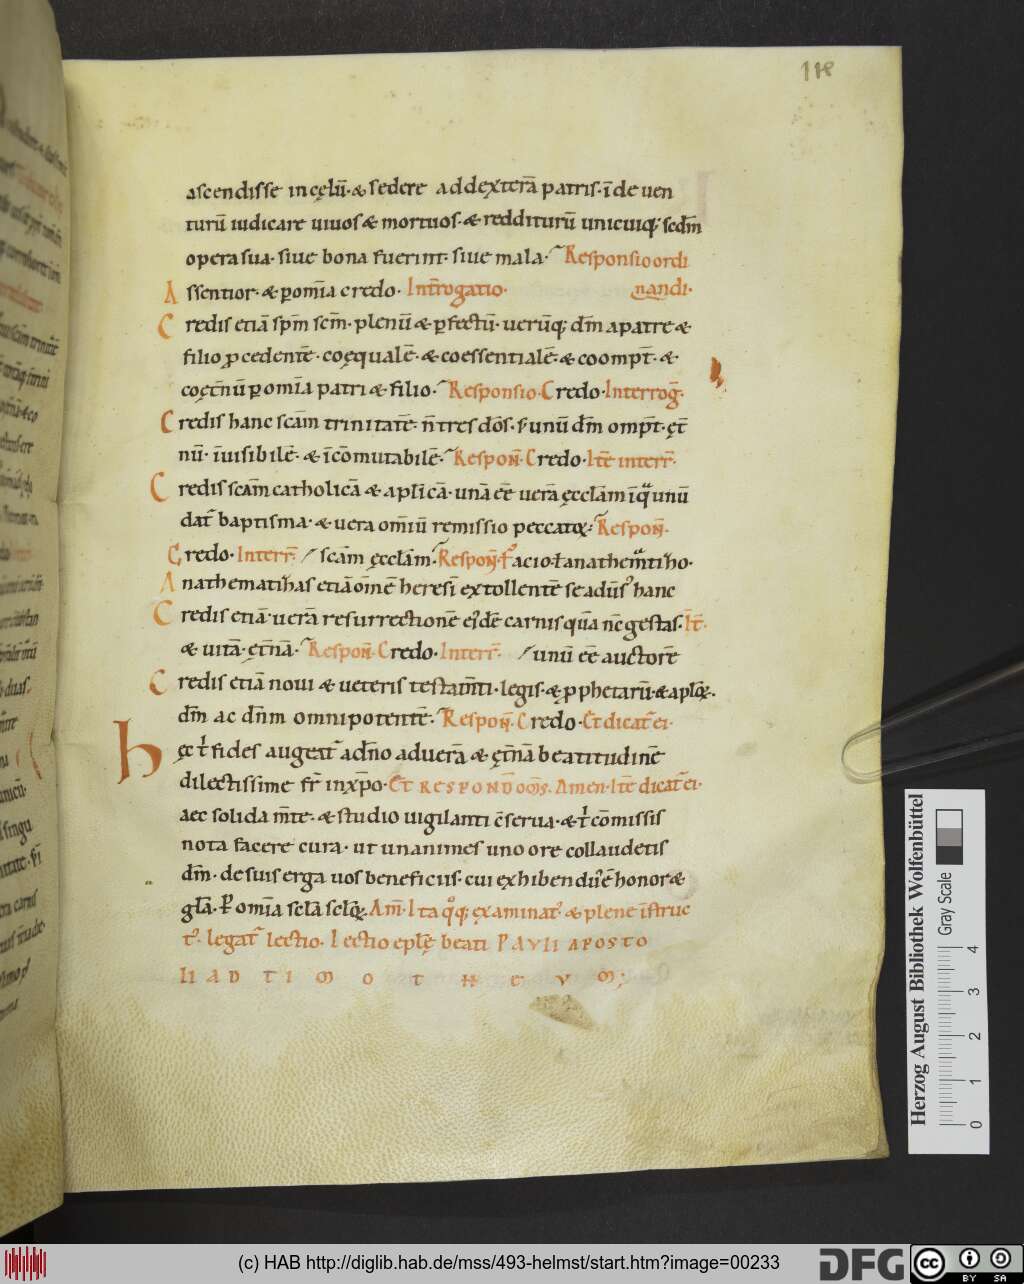 118
ascendisse in cęlū· & sedere ad dexterā patris· īde uen
turū iudicare uiuos & mortuos· & redditurū unicuiq; scdm̄
opera sua· siue bona fuerint· siue mala· Responsio ordi
Assentior· & ꝑ om̄ia credo· Int̄rogatio· nandi·
Credis etiā sp̄m sc̄m· plenū & ꝑfectū· uerūq; dm̄ a patre &
filio ꝓcedentē· coęqualē· & coessentialē· & coomp̄t· &
coęt̄nū ꝑ om̄ia patri & filio· Responsio· Credo· Interroḡ·
Credis hanc scām trinitatē· n̄ tres dōs· s; unū dm̄ omp̄t· ęt̄
nū· īuisibilē· & īcōmutabilē· Respon̄· Credo· Itē interr̄·
Credis scām catholicā & apl̄icā· unā eē uerā ęccl̄am ī q̄ unū
dat̄ baptisma· & uera om̄iū remissio peccatoꝝ· Respon̄·
Credo· Interr̄· scām ęccl̄am· Respon̄· facio· ł anathematizo·
Anathematizas etiā om̄ē heresī extollentē se aduersus hanc
Credis etiā· uerā resurrectionē eiusdē carnis quā nc̄ gestas· It̄·
& uitā· ęt̄nā· Respon̄· Credo· Interr̄· unū eē auctorē
Credis etiā noui & ueteris testam̄ti· legis· & ꝓphetarū· & aplōꝝ·
dm̄ ac dn̄m omnipotentē· Respon̄· Credo· Et dicat̄ ei·
Hęc t̄ fides augeat̄ a dn̄o ad uerā & ęt̄nā beatitudinē
dilectissime fr̄ in xp̄o· Et RESPONDōms· Amen· Itē dicat̄ ei·
aec solida m̄te· & studio uigilanti c̄serua· & t̄ cōmissis
nota facere cura· ut unanimes uno ore collaudetis
dm̄· de suis erga uos beneficiis· cui exhibendū ē honor &
gl̄a· ꝑ om̄ia scl̄a scl̄oꝝ· Am̄· Ita q̊q; ęxaminat; & plene īstruc
t;· legat̄ lectio· Lectio epl̄ę beati PAVLI APOSTO
LI AD TIMOTHEVM;
Herzog August Bibliothek Wolfenbüttel
Gray Scale
0 1 2 3 4
(c) HAB http://diglib.hab.de/mss/493-helmst/start.htm?image=00233
DFG
cc BY SA